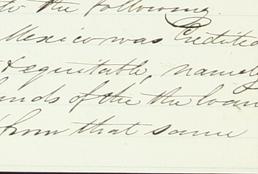 to the following.
Mexico was Credited
& equitable, namely
funds of the the loan
from that same